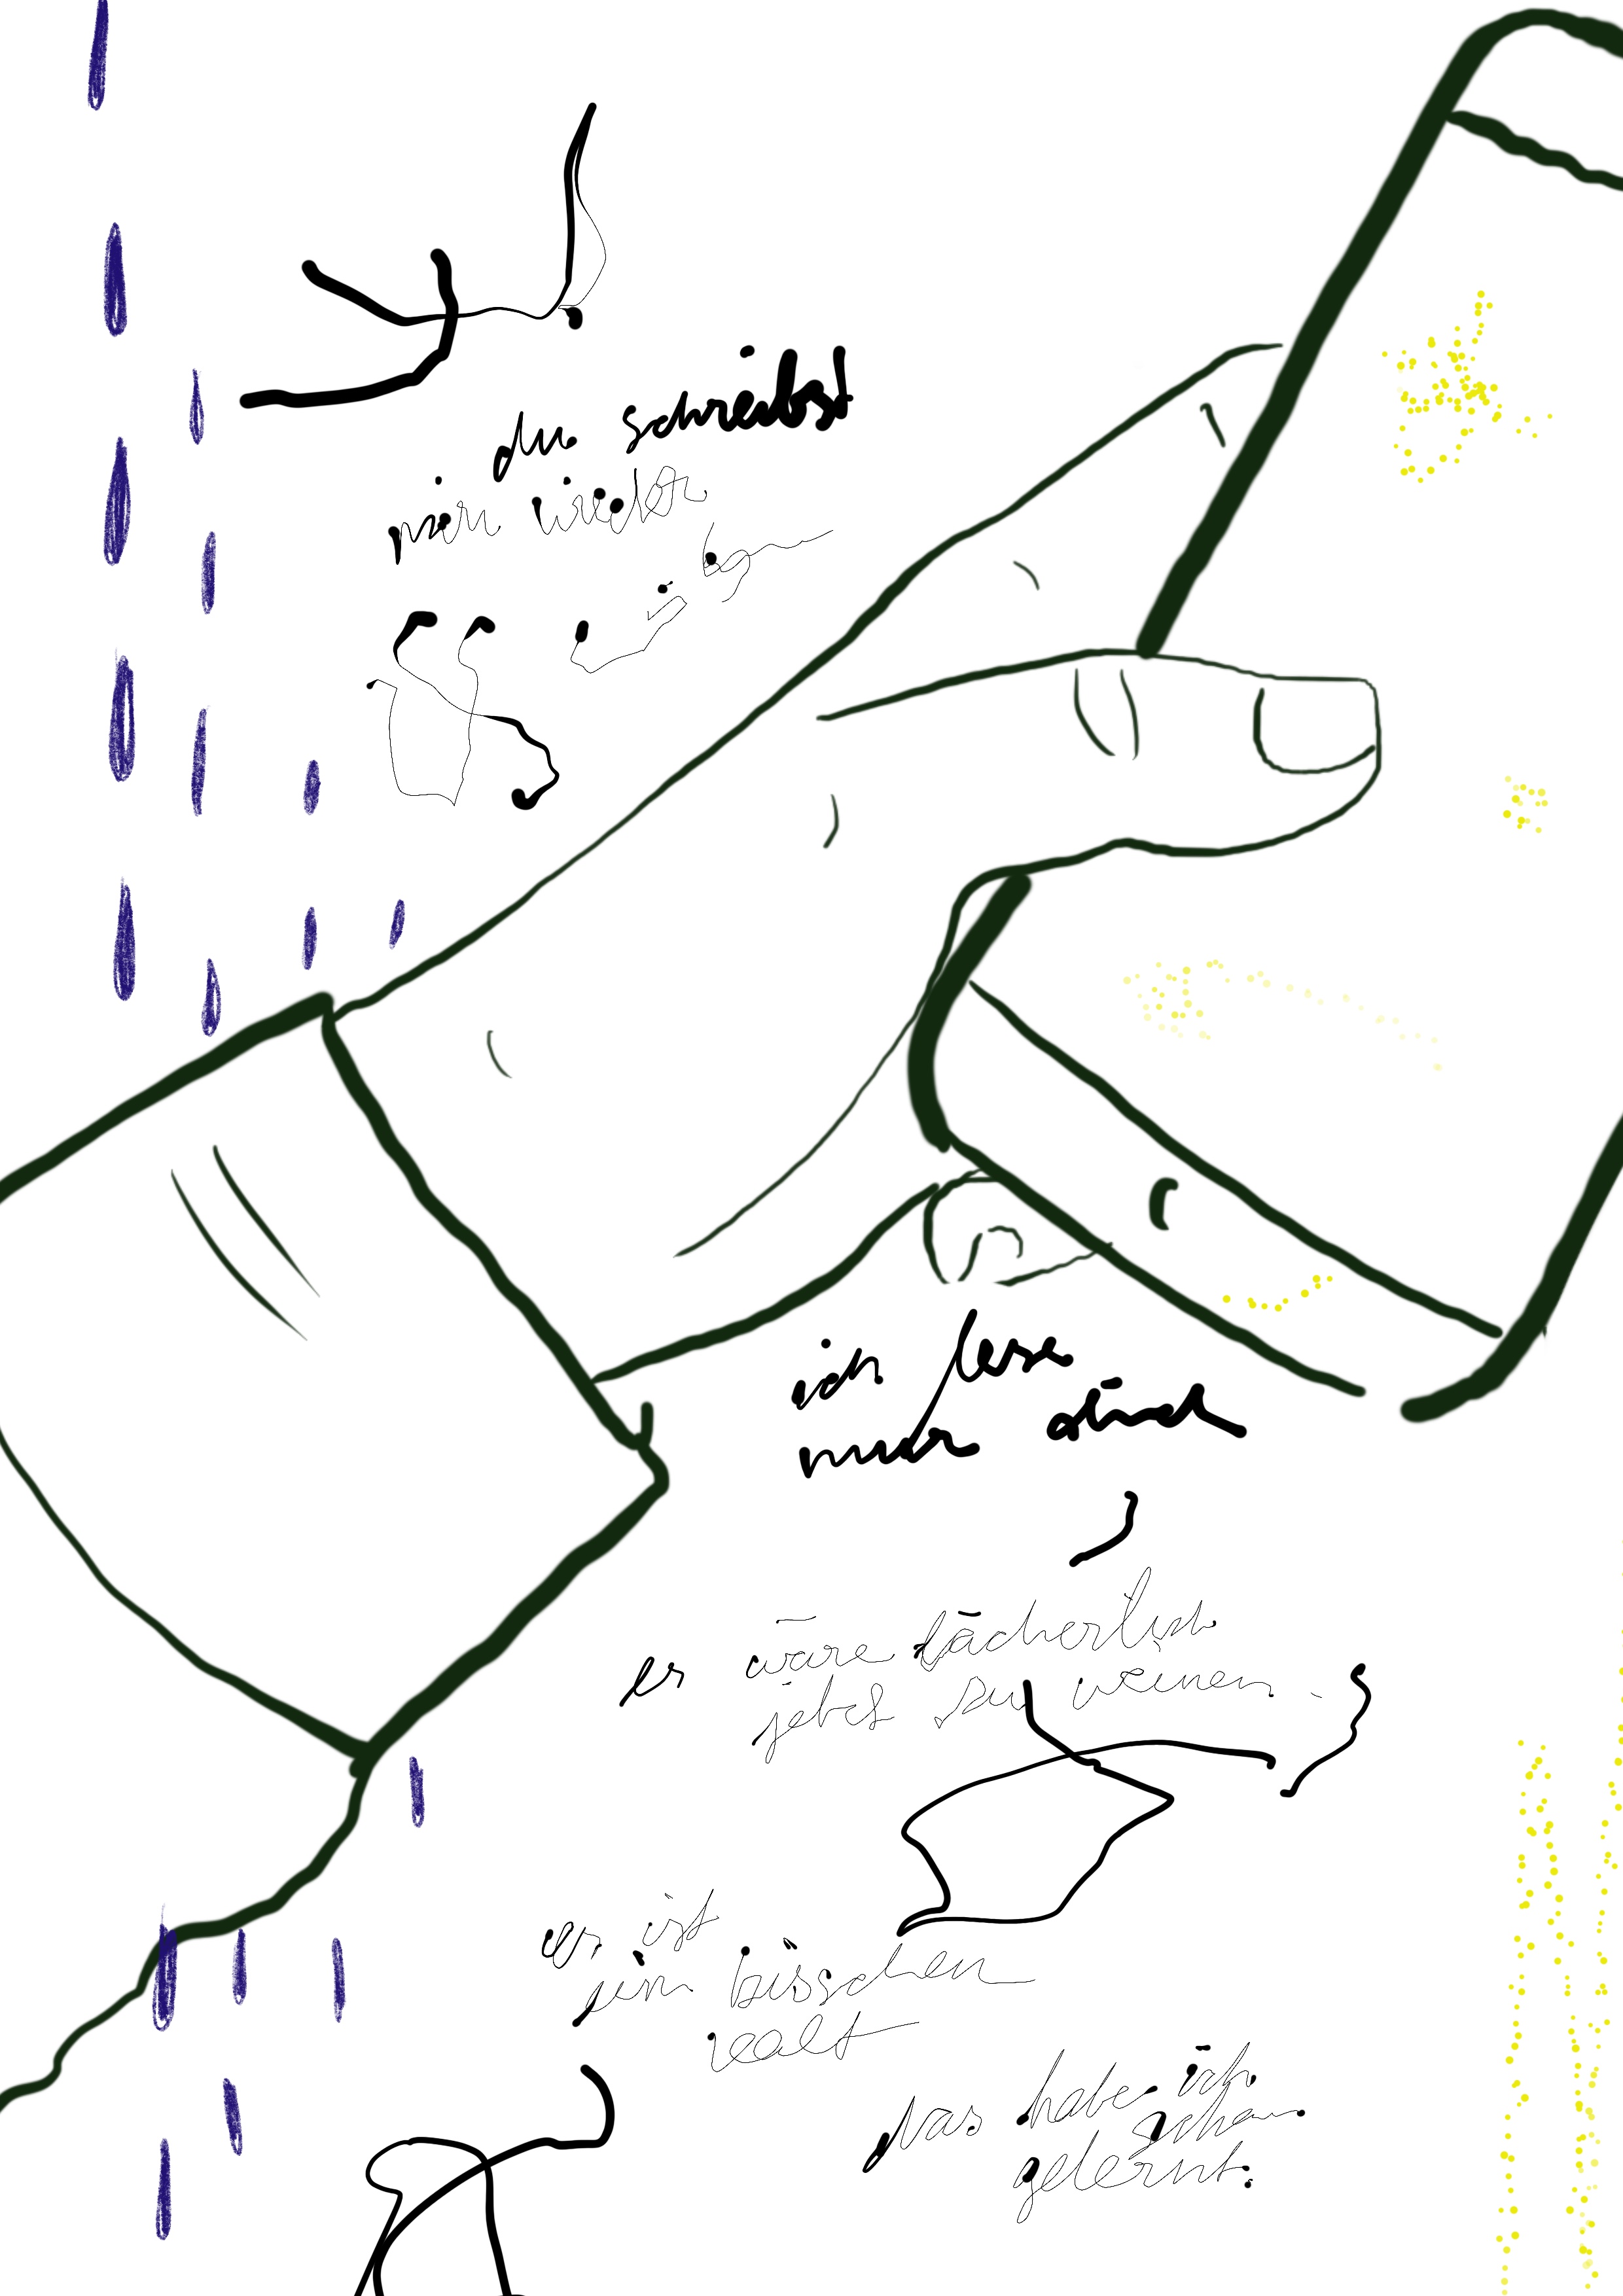 du schreibst
mir
ich lese
nur dich
es wäre lächerlich
jetzt zu weinen
es ist
ein bisschen
kalt
das habe ich
schon
gelernt.